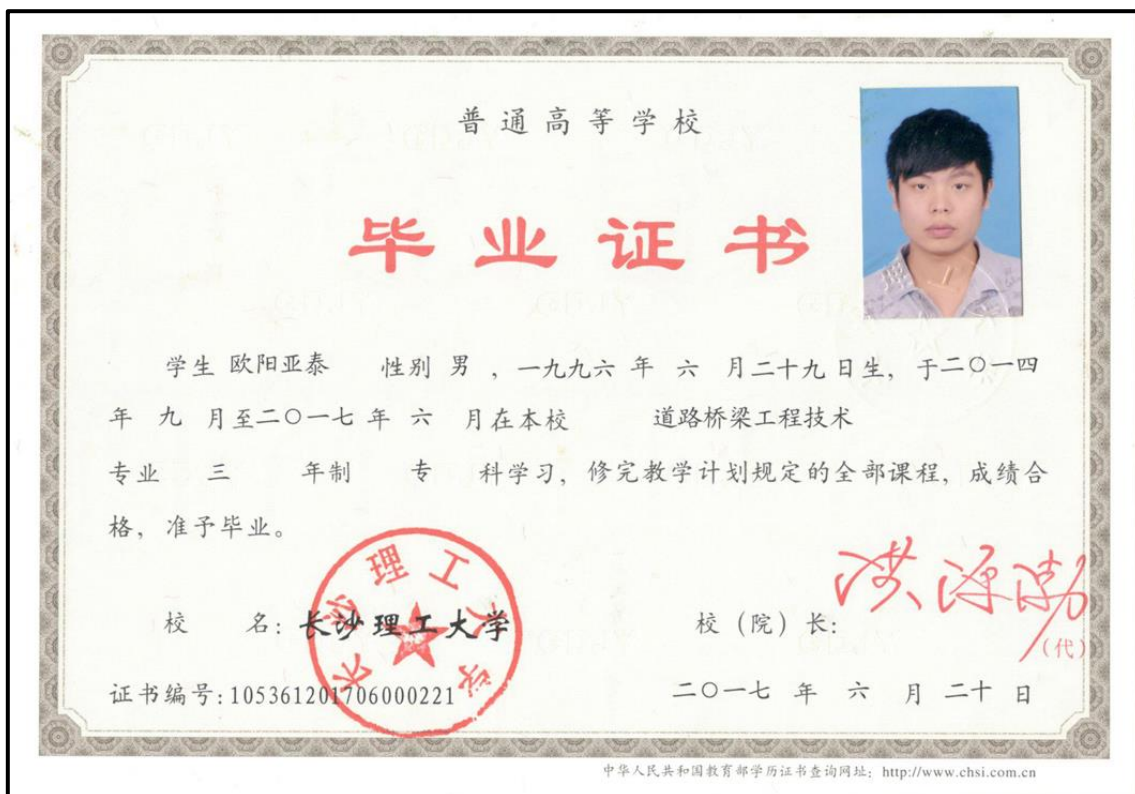 普通高等学校
毕业证书
学生 欧阳亚泰 性别 男 ，一九九六 年 六 月二十九日生，于二〇一四
年 九 月至二〇一七 年 六 月在本校 道路桥梁工程技术
专业 三 年制 专 科学习，修完教学计划规定的全部课程，成绩合
格，准予毕业。
长沙理工大学
校 名：长沙理工大学
校（院）长：洪源渤
（代）
证书编号：105361201706000221
二〇一七 年 六 月 二十 日
中华人民共和国教育部学历证书查询网址：http://www.chsi.com.cn